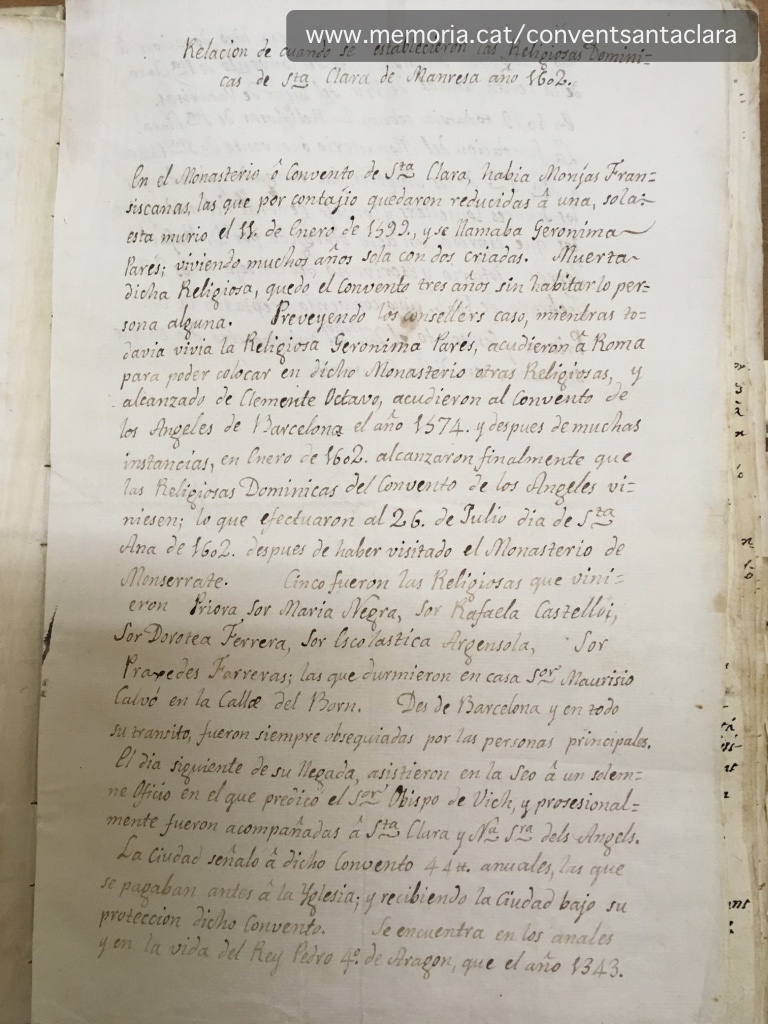 www.memoria.cat/conventsantaclara
Relacion de cuando se establecieron las Religiosas Domini-
cas de Sta Clara de Manresa año 1602.
En el Monasterio ô Convento de Sta Clara, habia Monjas Fran-
siscanas, las que por contajio quedaron reducidas â una, sola
esta murio el 11. de Enero de 1599., y se llamaba Geronima
Parés; viviendo muchos años sola con dos criadas. Muerta
dicha Religiosa, quedó el Convento tres años sin habitarlo per-
sona alguna. Preveyendo los consellers caso, mientras to-
davia vivia la Religiosa Geronima Parés, acudieron â Roma
para poder colocar en dicho Monasterio otras Religiosas, y
alcanzado de Clemente Octavo, acudieron al Convento de
los Angeles de Barcelona el año 1574. y despues de muchas
instancias, en Enero de 1602. alcanzaron finalmente que
las Religiosas Dominicas del Convento de los Angeles vi-
niesen; lo que efectuaron al 26. de Julio dia de Sta
Ana de 1602. despues de haber visitado el Monasterio de
Monserrate. Cinco fueron las Religiosas que vini-
eron Priora Sor Maria Negra, Sor Rafaela Castelloi,
Sor Dorotea Ferrera, Sor Escolastica Argensola, Sor
Praxedes Farreras; las que durmieron en casa Sor Maurisio
Calvó en la Calle del Born. Des de Barcelona y en todo
su transito, fueron siempre obsequiadas por las personas principales.
El dia siguiente de su llegada, asistieron en la Seo â un solem-
ne Oficio en el que predicó el Sor Obispo de Vich, y prosesional-
mente fueron acompañadas â Sta Clara y Na Sra dels Angels.
La Ciudad señaló â dicho Convento 44 tt. anuales, las que
se pagaban antes â la Yglesia; y recibiendo la Ciudad bajo su
proteccion dicho Convento. Se encuentra en los anales
y en la vida del Rey Pedro 4º. de Aragon, que el año 1343.